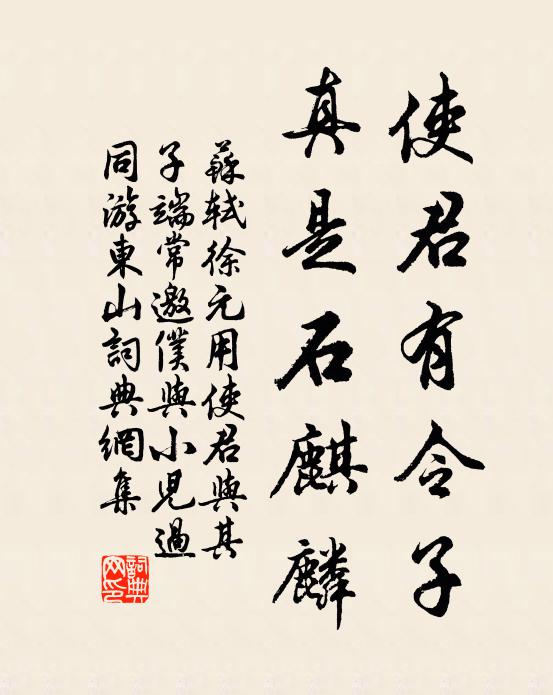 使君有令子
真是石麒麟
蘇軾徐元用使君與其
子端常邀僕與小兒過
同游東山詞典網集
詞典
网印